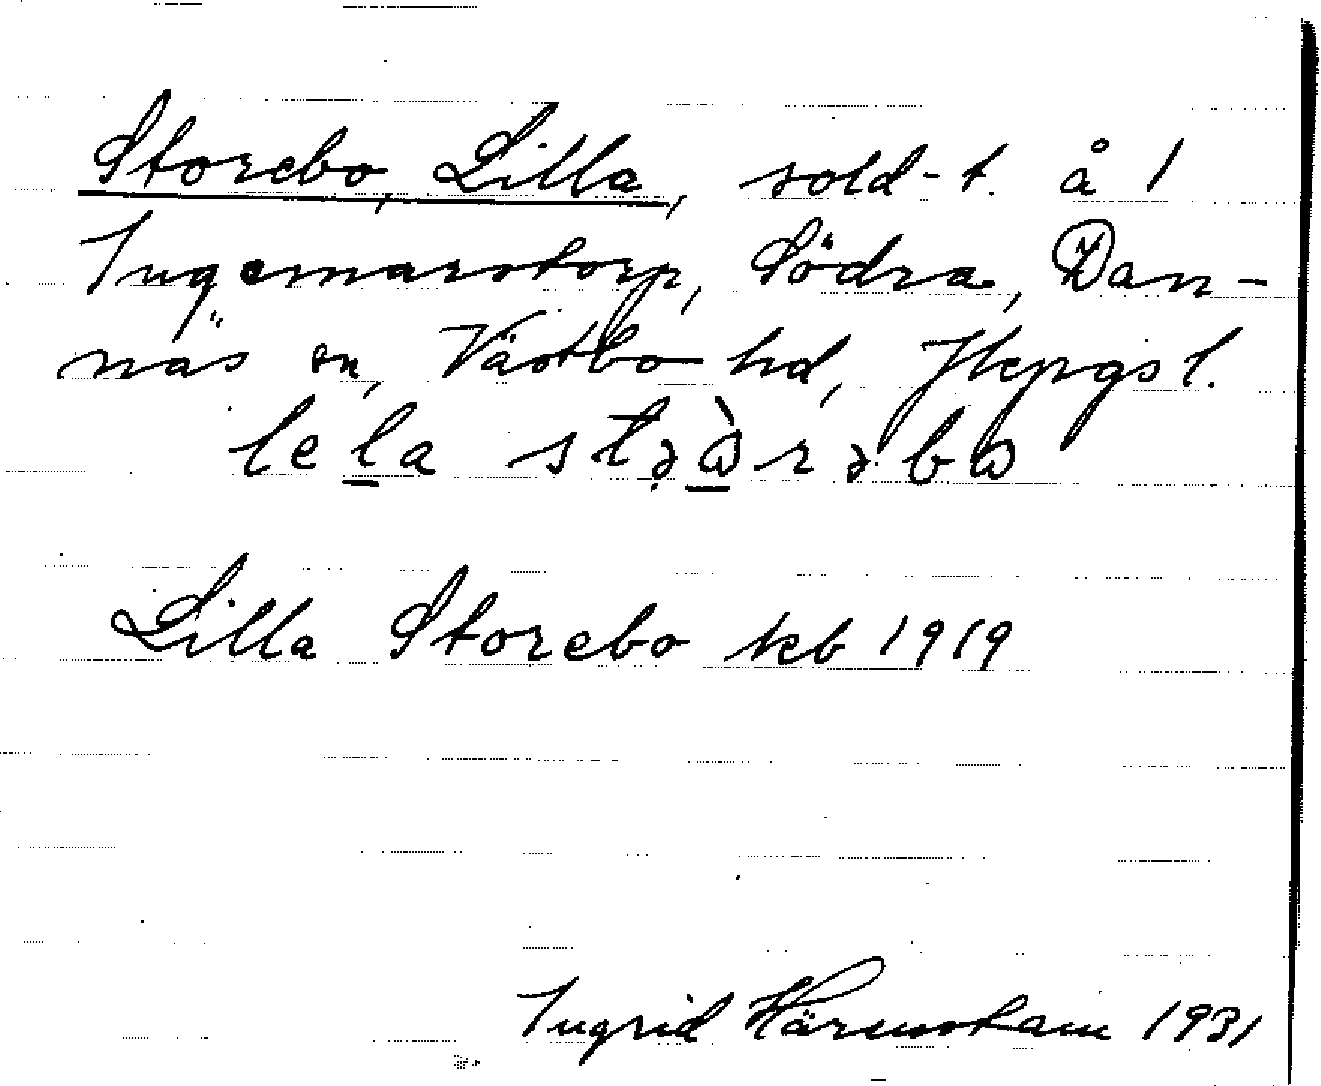 Storebo, Lilla, sold-t. å 1
Ingemarstorp, Södra, Dan-
näs sn, Västbo hd, Jkpgs l.
lela stəɷ̀rəbɷ
Lilla Storebo kb 1919
Ingrid Härenstam 1931